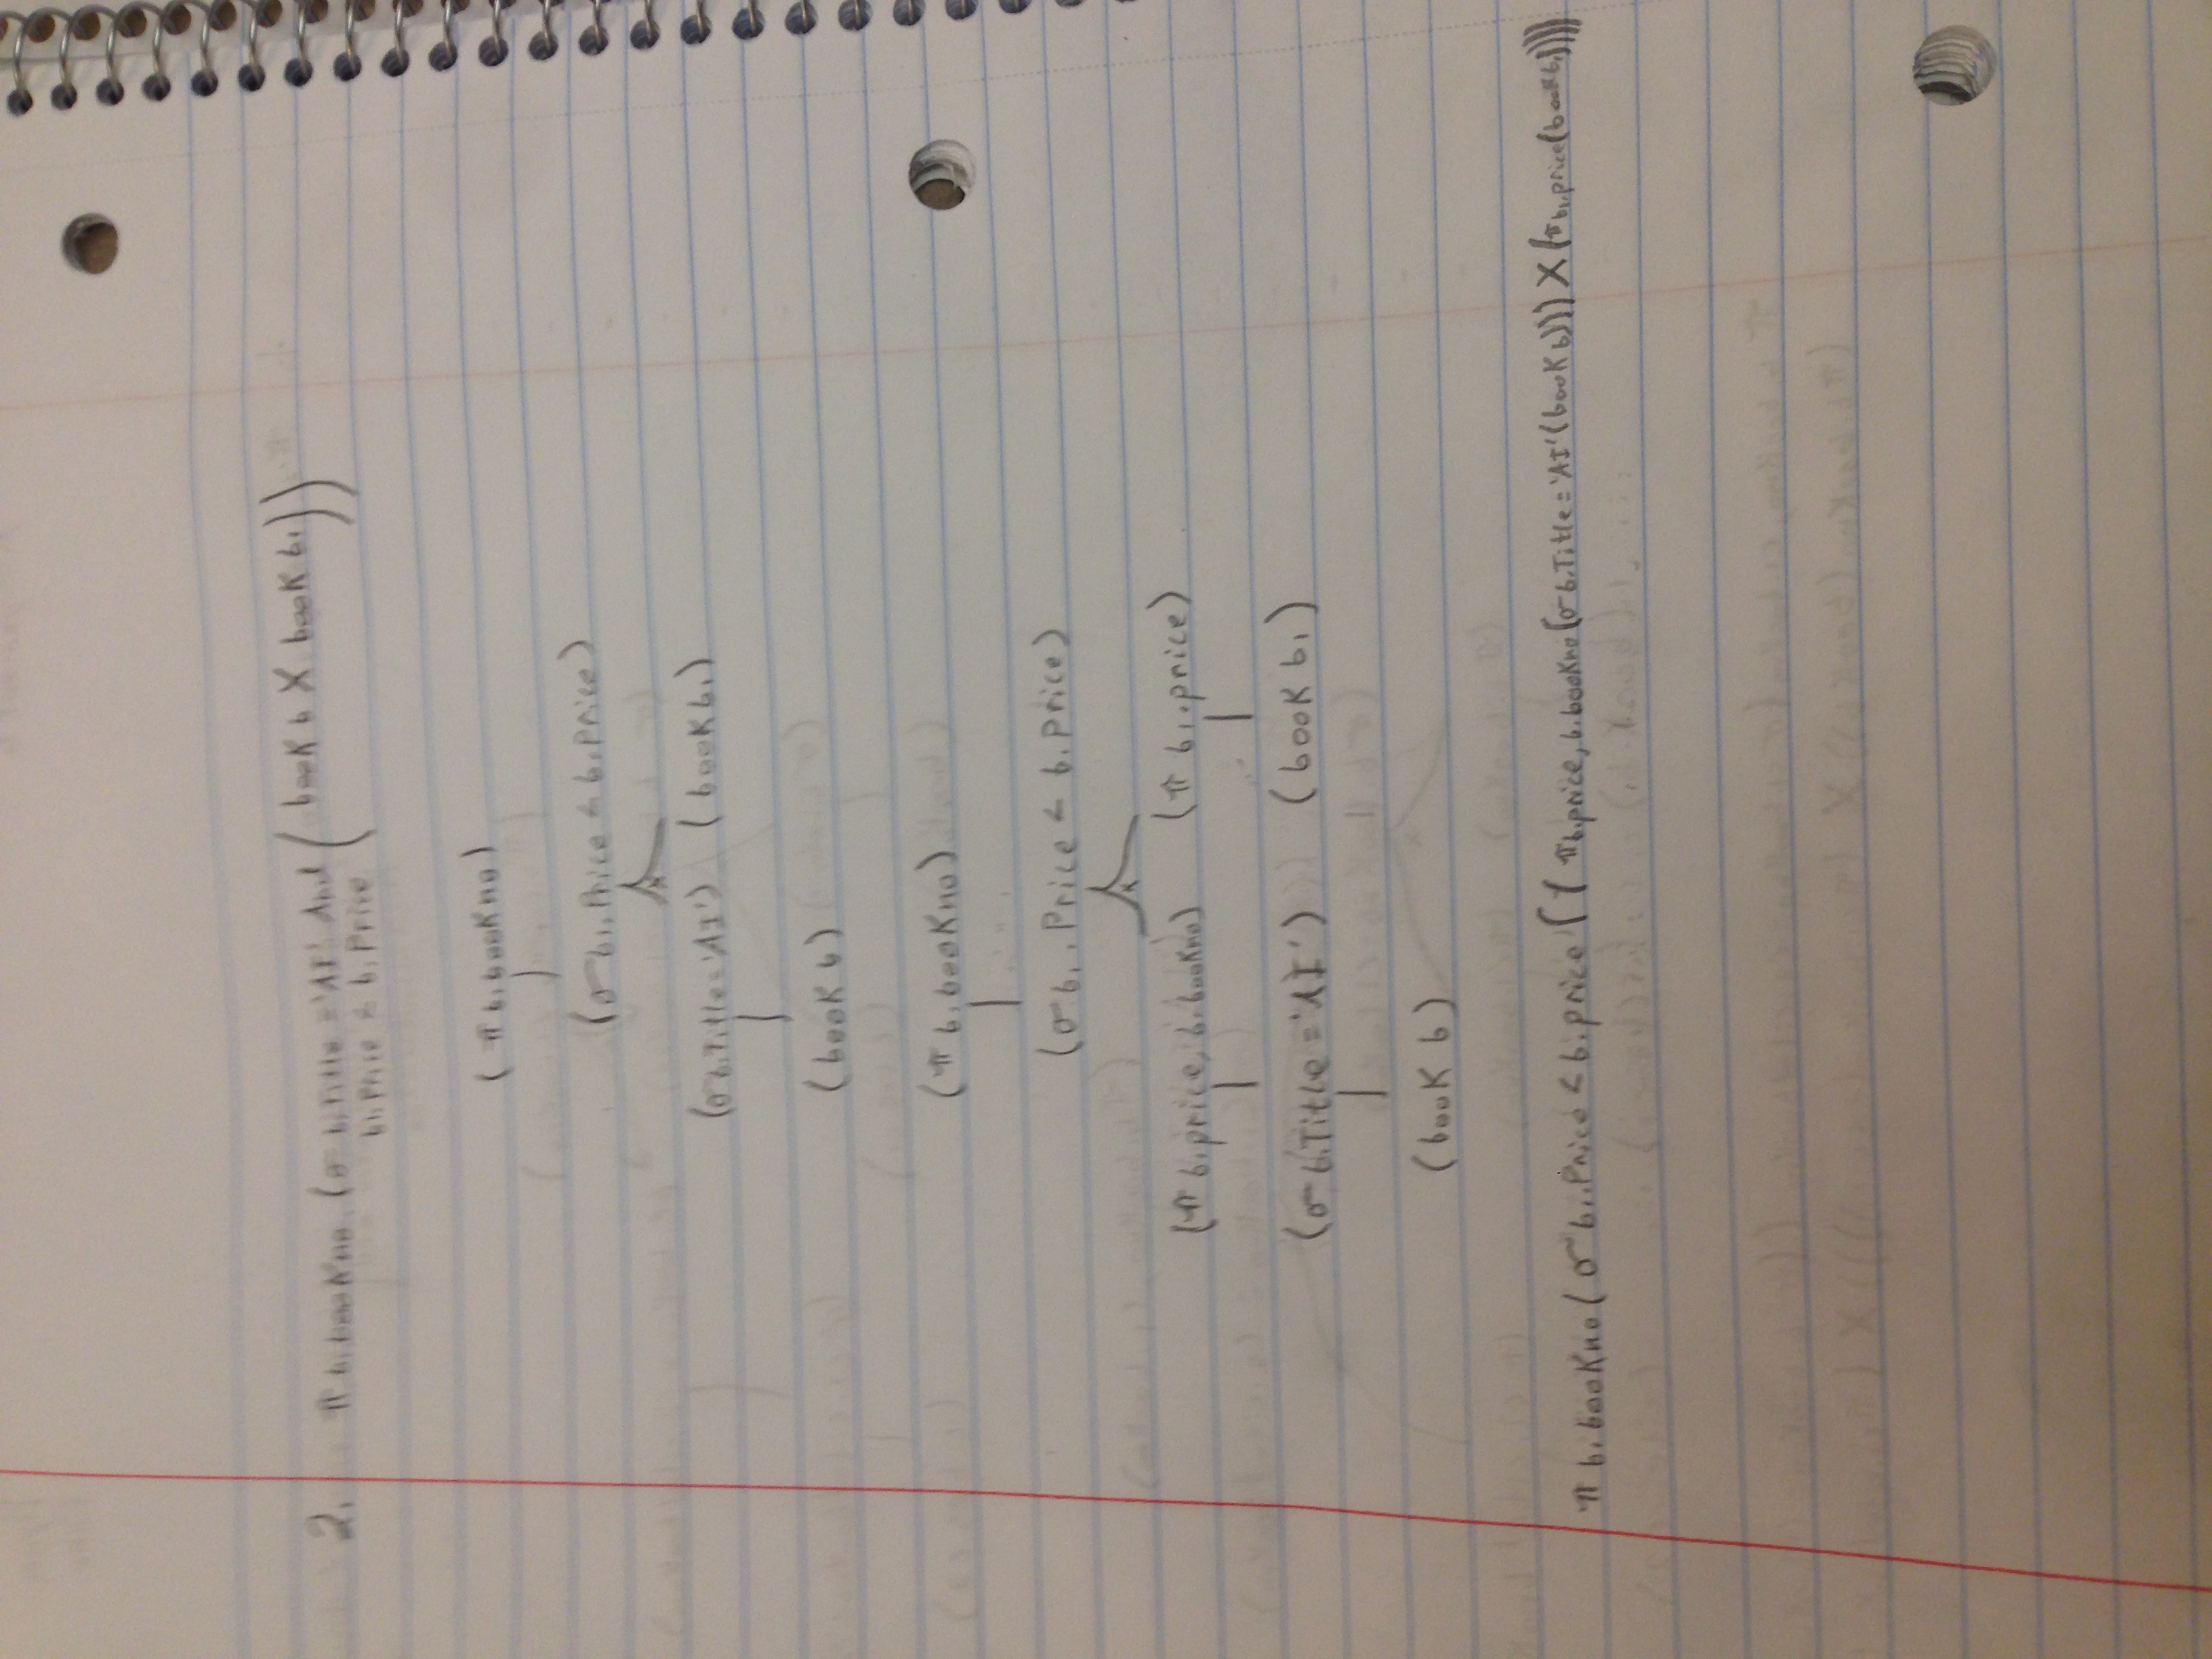 2. π b.bookno (σ b.Title ='AI' And (book b X book b₁))
b₁.Price < b.Price
(π b.bookno)
(σ b₁.Price < b.Price)
x
(σ b.Title='AI') (book b₁)
(book b)
(π b.bookno)
(σ b₁.Price < b.Price)
x
(π b.price, b.bookno) (π b₁.price)
(σ b.Title ='AI') (book b₁)
(book b)
π b.bookno ( σ b₁.Price < b.price ( ( π b.price, b.bookno (σ b.Title='AI' (book b))) X (π b₁.price(book b₁))))